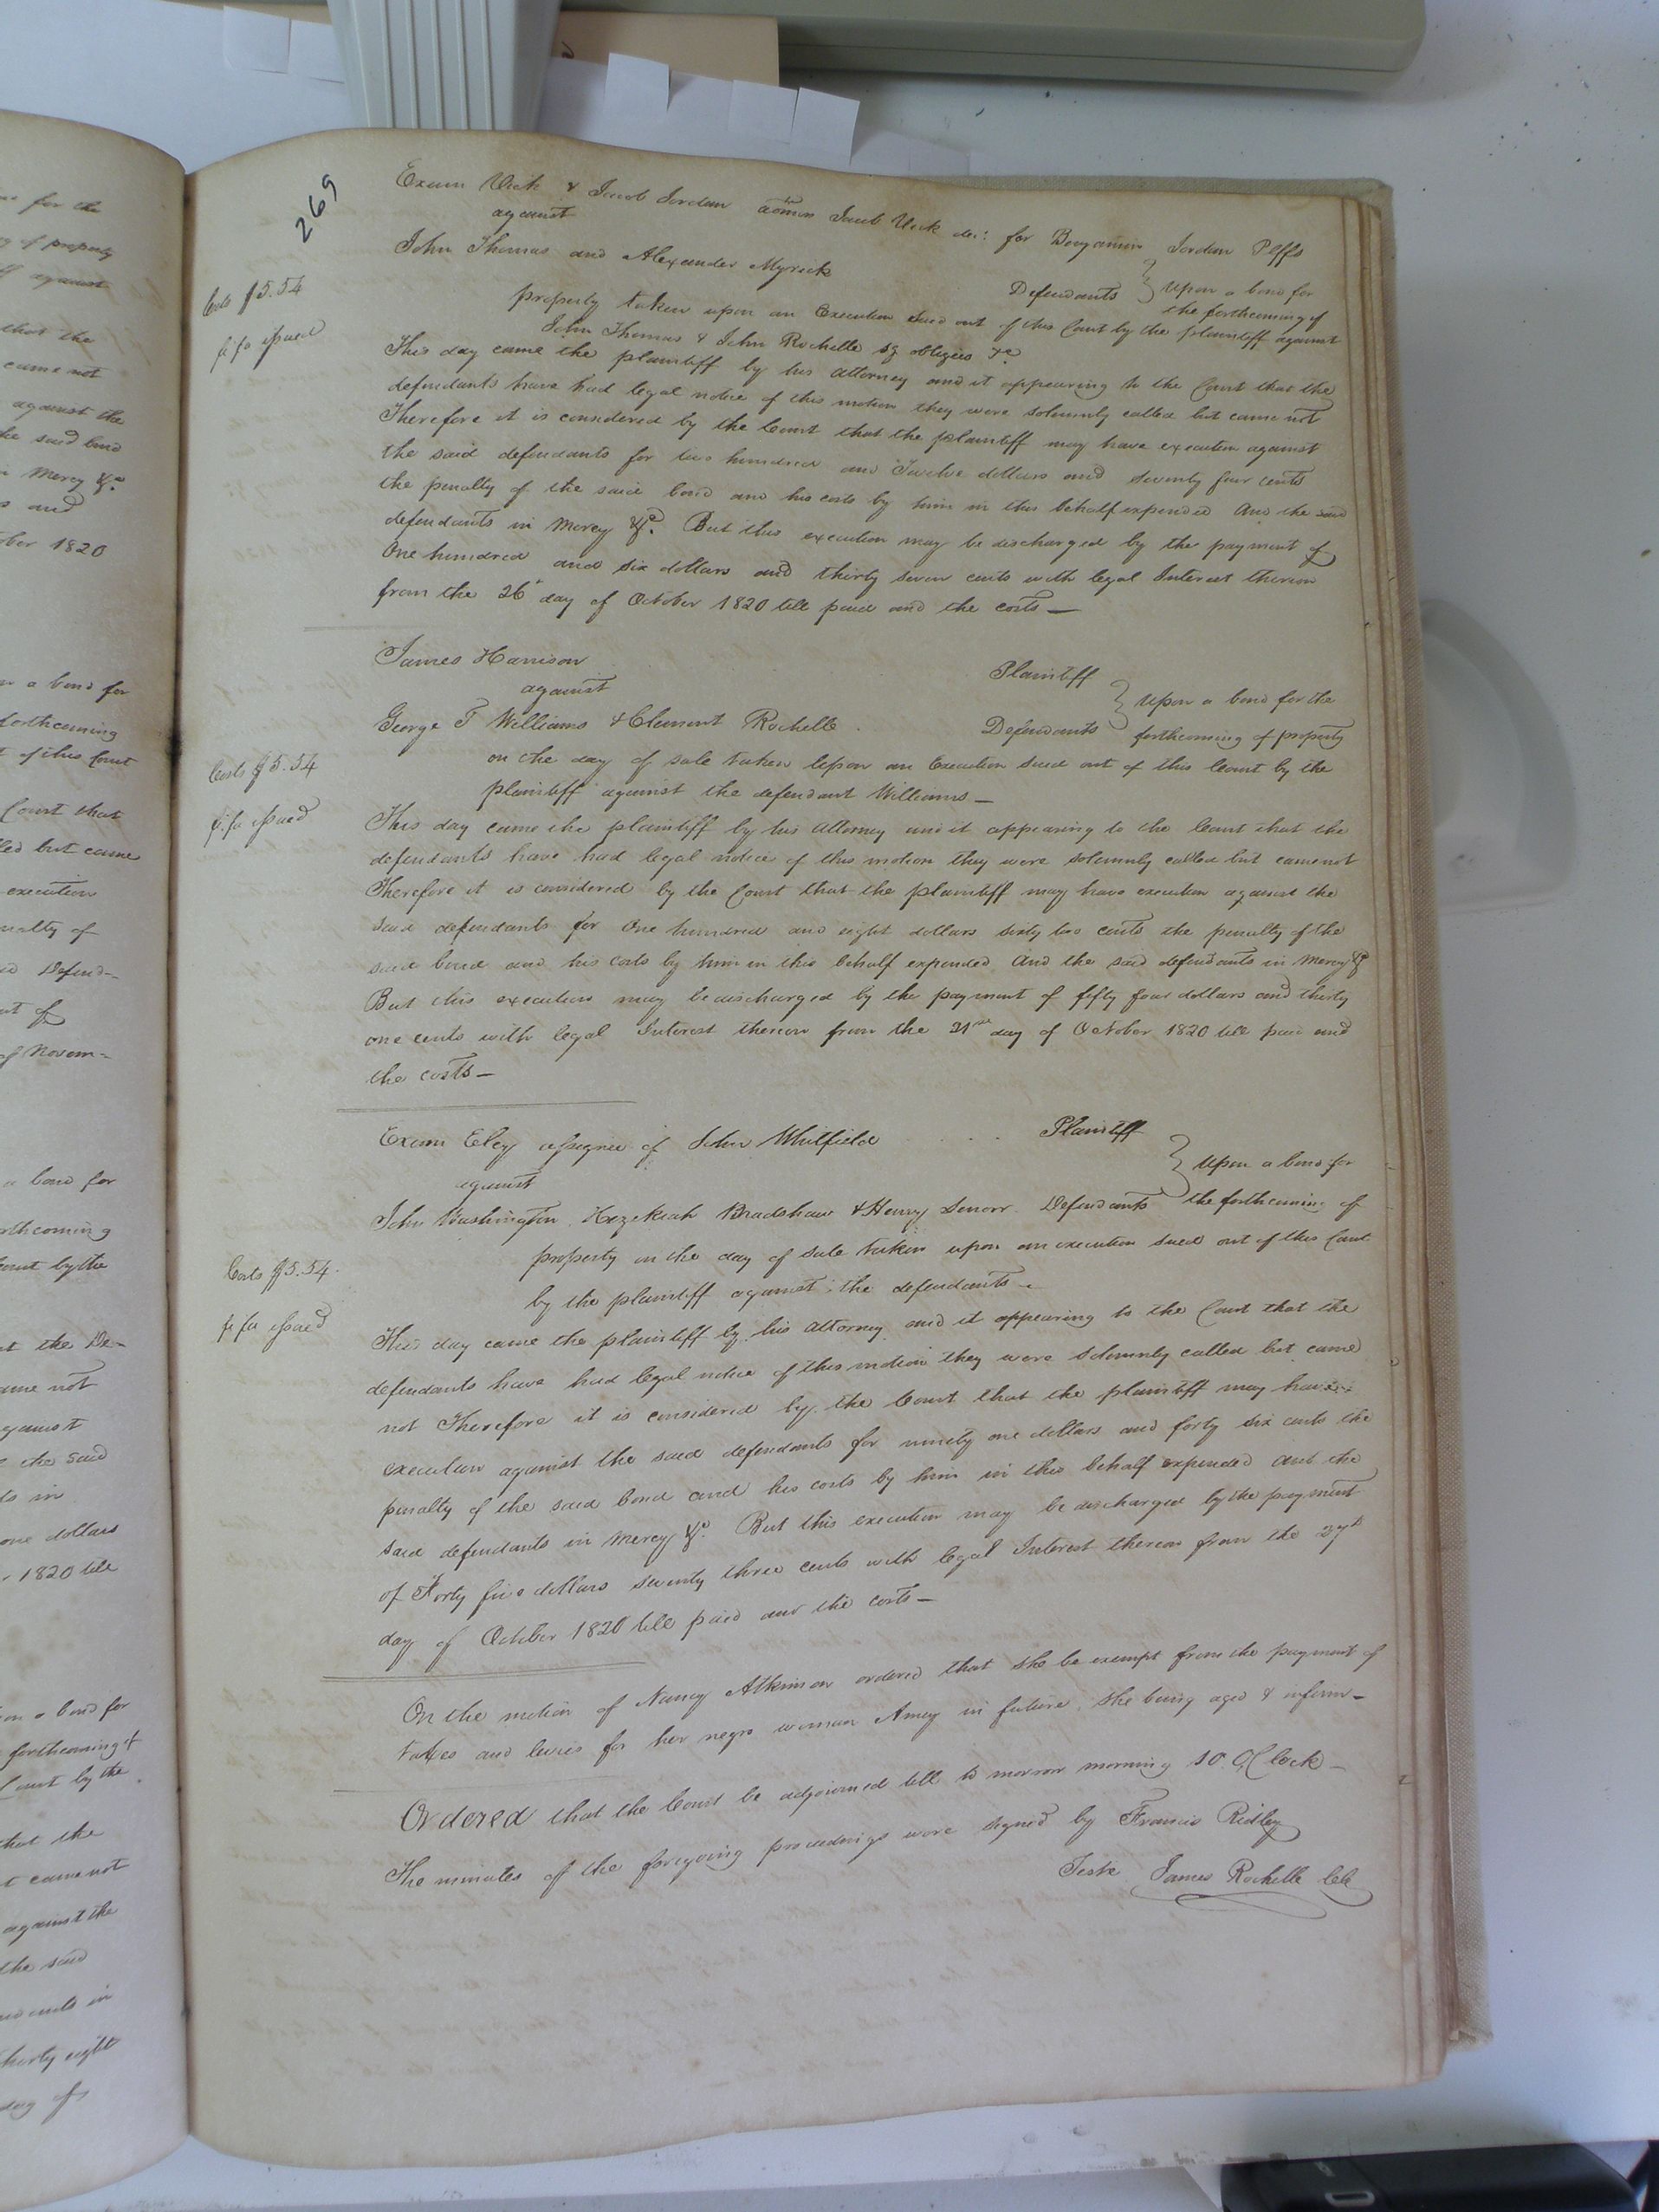 269
Exum Vick & Jacob Jordan admrs Jacob Vick dec: for Benjamin Jordan Plffs
against
John Thomas and Alexander Myrick Defendants } Upon a bond for
the forthcoming of
property taken upon an Execution Sued out of this Court by the plaintiff against
John Thomas & John Rochelle obligees &c
Costs $5.54
fi fa issued
This day came the plaintiff by his attorney and it appearing to the Court that the
defendants have had legal notice of this motion they were solemnly called but came not
Therefore it is considered by the Court that the plaintiff may have execution against
the said defendants for two hundred and Twelve dollars and seventy four cents
the penalty of the said bond and his costs by him in this behalf expended And the said
defendants in mercy &c. But this execution may be discharged by the payment of
One hundred and six dollars and thirty seven cents with legal Interest thereon
from the 26th day of October 1820 till paid and the costs—
James Harrison Plaintiff
against } Upon a bond for the
George T Williams & Clement Rochelle Defendants forthcoming of property
on the day of sale taken upon an Execution sued out of this Court by the
plaintiff against the defendant Williams—
Costs $5.54
fi. fa issued
This day came the plaintiff by his attorney and it appearing to the Court that the
defendants have had legal notice of this motion they were solemnly called but came not
Therefore it is considered by the Court that the plaintiff may have execution against the
said defendants for One hundred and eight dollars sixty two cents the penalty of the
said bond and his costs by him in this behalf expended And the said defendants in mercy &c
But this execution may be discharged by the payment of fifty four dollars and thirty
one cents with legal Interest thereon from the 21st day of October 1820 till paid and
the costs—
Exum Eley assignee of John Whitfield Plaintiff
against } Upon a bond for
John Washington, Hezekiah Bradshaw & Henry Defendants the forthcoming of
property on the day of sale taken upon an execution sued out of this Court
by the plaintiff against the defendants—
Costs $5.54.
fi fa issued
This day came the plaintiff by his attorney and it appearing to the Court that the
defendants have had legal notice of this motion they were solemnly called but came
not Therefore it is considered by the Court that the plaintiff may have
execution against the said defendants for ninety one dollars and forty six cents the
penalty of the said bond and his costs by him in this behalf expended and the
said defendants in mercy &c. But this execution may be discharged by the payment
of Forty five dollars seventy three cents with legal Interest thereon from the 27th
day of October 1820 till paid and the costs—
On the motion of Nancy Atkinson ordered that she be exempt from the payment of
taxes and levies for her negro woman Amey in future, she being aged & infirm—
Ordered that the Court be adjourned till to morrow morning 10 OClock—
The minutes of the foregoing proceedings were signed by Francis Ridley
Teste James Rochelle Clk